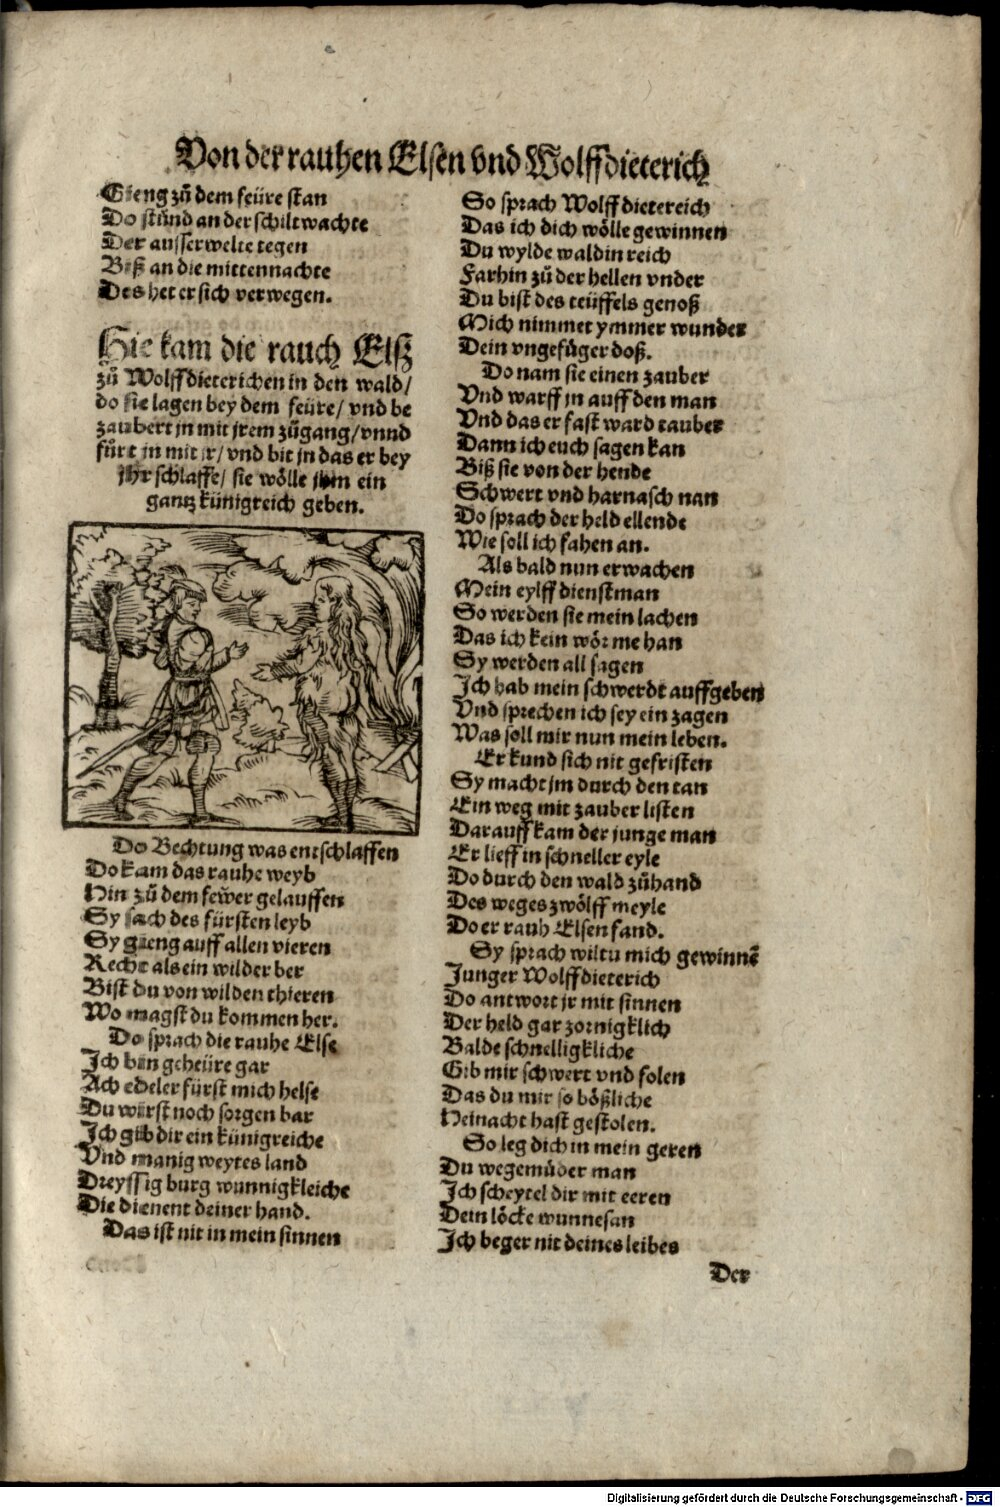 Von der rauhen Elsen vnd Wolffdieterich
Gieng zů dem feüre stan
Do stůnd an der schiltwachte
Der ausserwelte tegen
Biß an die mittennachte
Des het er sich verwegen.
Hie kam die rauch Elß
zů Wolffdieterichen in den wald/
do sie lagen bey dem feüre/ vnd be
zaubert jn mit jrem zůgang/ vnnd
fůrt jn mit jr/ vnd bit jn das er bey
jhr schlaffe/ sie wölle jhm ein
gantz künigreich geben.
Do Bechtung was entschlaffen
Do kam das rauhe weyb
Hin zů dem fewer gelauffen
Sy sach des fürsten leyb
Sy gieng auff allen vieren
Recht als ein wilder ber
Bist du von wilden thieren
Wo magst du kommen her.
Do sprach die rauhe Else
Ich bin geheüre gar
Ach edeler fürst mich helse
Du wirst noch sorgen bar
Ich gib dir ein künigreiche
Vnd manig weytes land
Dreyssig burg wunnigkleiche
Die dienent deiner hand.
Das ist nit in mein sinnen
So sprach Wolff dietereich
Das ich dich wölle gewinnen
Du wylde waldin reich
Farhin zů der hellen vnder
Du bist des teüffels genoß
Mich nimmet ymmer wunder
Dein vngefüger doß.
Do nam sie einen zauber
Vnd warff jn auff den man
Vnd das er fast ward tauber
Dann ich euch sagen kan
Biß sie von der hende
Schwert vnd harnasch nan
Do sprach der held ellende
Wie soll ich fahen an.
Als bald nun erwachen
Mein eylff dienstman
So werden sie mein lachen
Das ich kein wör me han
Sy werden all sagen
Ich hab mein schwerdt auffgeben
Vnd sprechen ich sey ein zagen
Was soll mir nun mein leben.
Er kund sich nit gefristen
Sy macht jm durch den tan
Ein weg mit zauber listen
Darauff kam der junge man
Er lieff in schneller eyle
Do durch den wald zůhand
Des weges zwölff meyle
Do er rauh Elsen fand.
Sy sprach wiltu mich gewinnē
Junger Wolffdieterich
Do antwort jr mit sinnen
Der held gar zornigklich
Balde schnelligkliche
Gib mir schwert vnd folen
Das du mir so bößliche
Heinacht hast gestolen.
So leg dich in mein geren
Du wegemüder man
Ich scheytel dir mit eeren
Dein löcke wunnesan
Ich beger nit deines leibes
Der
Digitalisierung gefördert durch die Deutsche Forschungsgemeinschaft - DFG